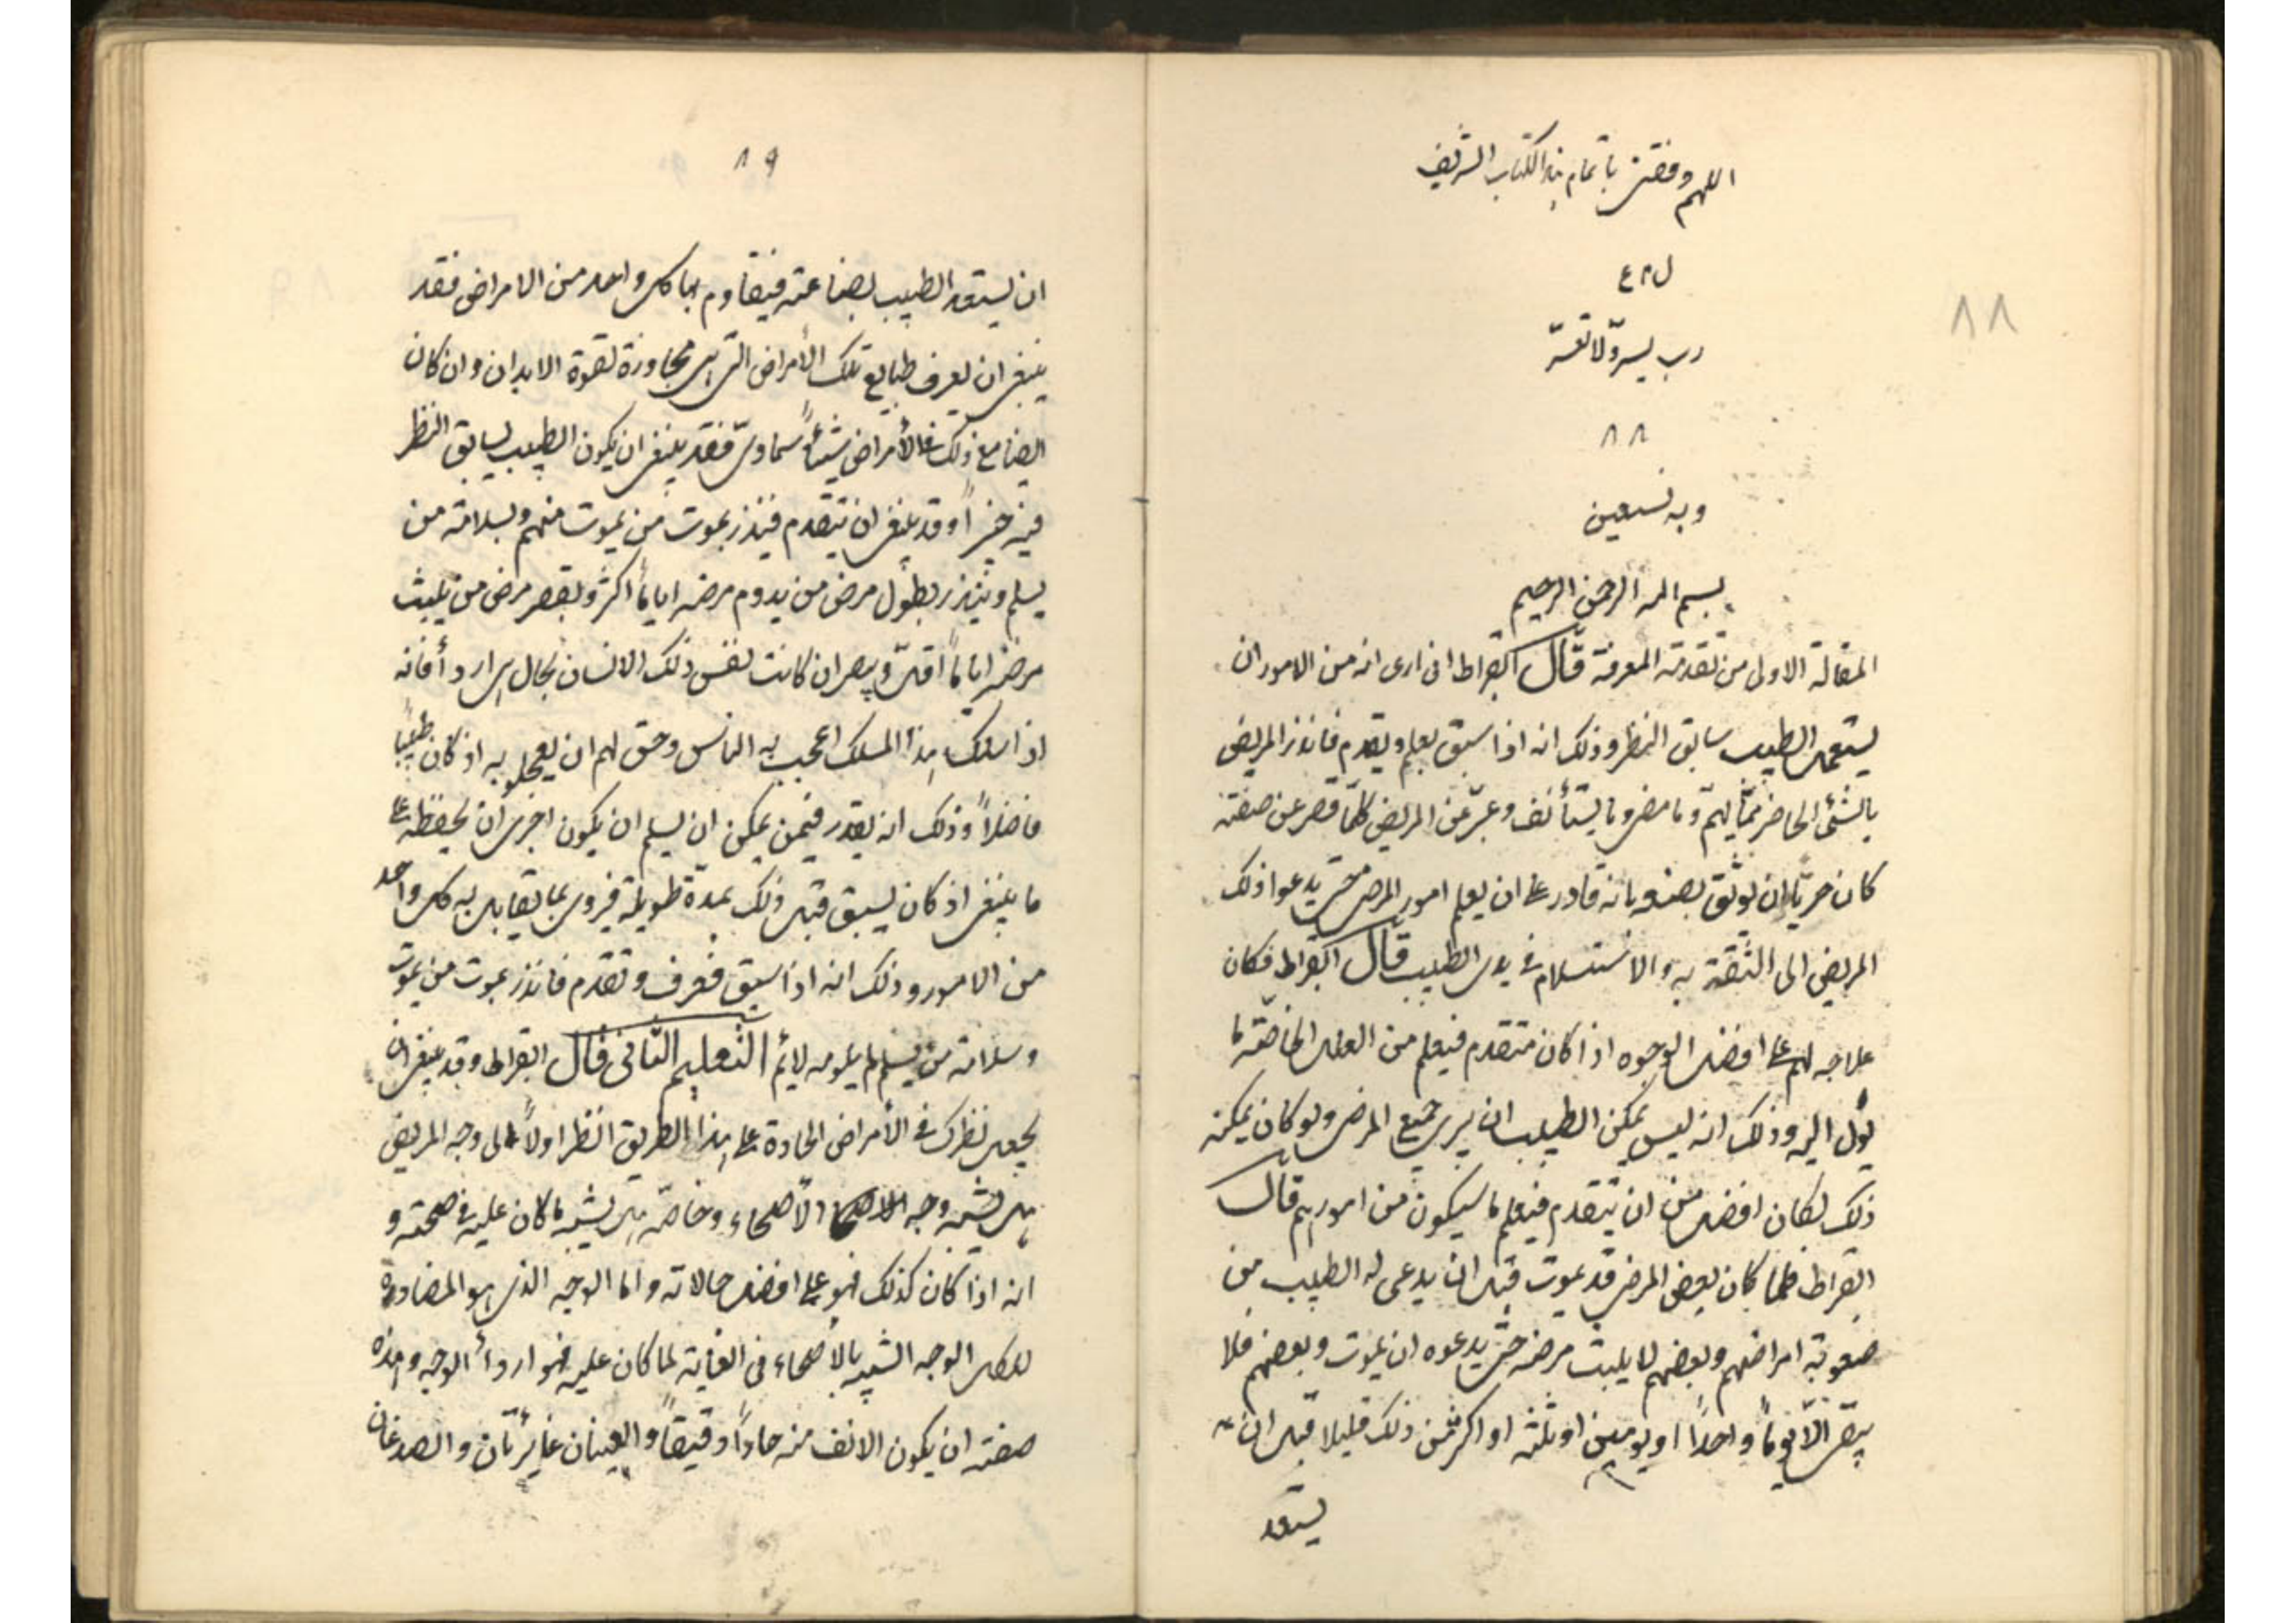 اللهم وفقنى باتمام هذا الكتاب الشريف
٨٨
رب يسر ولا تعسر
٨٨
وبه نستعين
بسم الله الرحمن الرحيم
المقالة الاولى من تقدمة المعرفة قال ابقراط انى ارى انه من الامور ان
يستعمل الطبيب سابق النظر وذلك انه اذا سبق يعلم ويقدم فانذر المريض
بالشئ الحاضر مما بهم وما مضى وما يستأنف وعبر عن المريض كلما قصر عن صفته
كان حريا ان يوثق بصنعه بانه قادر على ان يعلم امور المرضى حتى يدعوا ذلك
المريض الى الثقة به والاستسلام فى يدى الطبيب قال ابقراط فكان
علاجه لهم على افضل الوجوه اذا كان متقدم فيعلم من العلل الخاصة ما
يؤل اليه وذلك انه ليس يمكن الطبيب ان يبرى جميع المرضى ولو كان يمكنه
ذلك لكان افضل من ان يتقدم فيعلم ما سيكون من امورهم قال
ابقراط فلما كان بعض المرضى قد يموت قبل ان يدعى له الطبيب من
صعوبة امراضهم وبعضهم لما يلبث مرضه حتى يدعوه ان يموت وبعضهم فلا
يبقى الا يوما واحدا او يومين او ثلثه او اكثر من ذلك قليلا قبل ان
يستعد
٨٩
ان يستعد الطبيب بصناعته فيقاوم بها كل واحد من الامراض فقد
ينبغى ان يعرف طبايع تلك الأمراض التى هى مجاوزة لقوة الابدان وان كان
ايضا مع ذلك فى الأمراض شيئا سماوى فقد ينبغى ان يكون الطبيب بسابق النظر
فيه خبيرا وقد ينبغى ان يتقدم فينذر بموت من يموت منهم وبسلامة من
يسلم وينذر بطول مرض من يدوم مرضه اياما اكثر وبقصر مرض من يلبث
مرضه اياما اقل وبصر ان كانت نفس ذلك الانسان بحال هى اردأ فانه
اذا سلك هذا المسلك اعجب به الناس وحق لهم ان يعجبوا به اذ كان طبيبا
فاضلا وذلك انه يقدر فيمن يمكن ان يسلم ان يكون احرى ان يحفظه على
ما ينبغى اذ كان يسبق قبل ذلك بمدة طويلة فيروى بما يقابل به كل واحد
من الامور وذلك انه اذا سبق فعرف وتقدم فانذر بموت من يموت
وسلامة من يسلم لم يلومه لائم التعليم الثانى قال ابقراط وقد ينبغى ان
يجعل نظرك فى الأمراض الحادة على هذا الطريق انظر اولا الى وجه المريض
هل يشبه وجه الاصحاء وخاصة هل يشبه ما كان عليه فى صحته و
انه اذا كان كذلك فهو على افضل حالاته واما الوجه الذى هو المضادة
لذلك الوجه الشبيه بالاصحاء فى الغاية لما كان عليه فهو اردأ الوجه وهذه
صفته ان يكون الانف منه حادا دقيقا والعينان غايرتان والصدغان